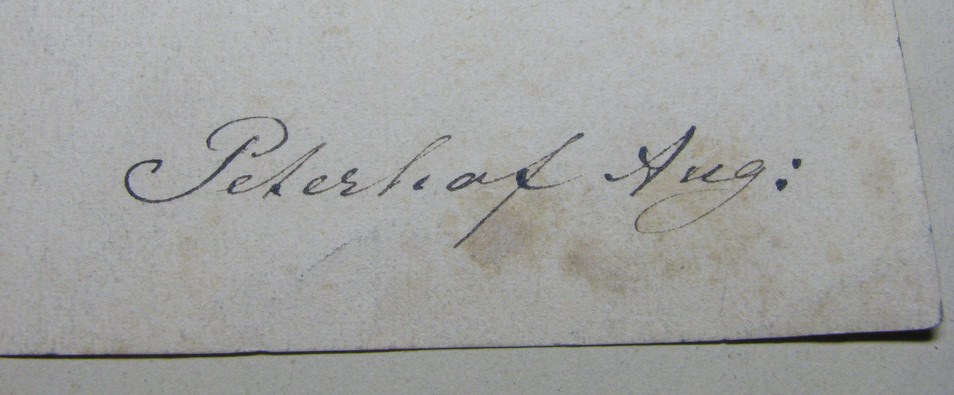 Peterhof Aug: